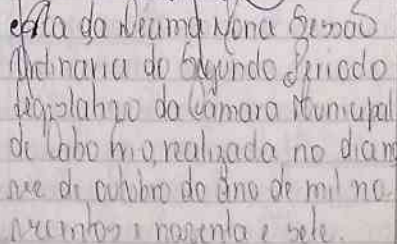 Ata da Decima Nona Sessão
Ordinaria do Segundo Periodo
Legislativo da Câmara Municipal
de Cabo Frio, realizada no dia no
ve de outubro do ano de mil no
vecentos e noventa e sete.